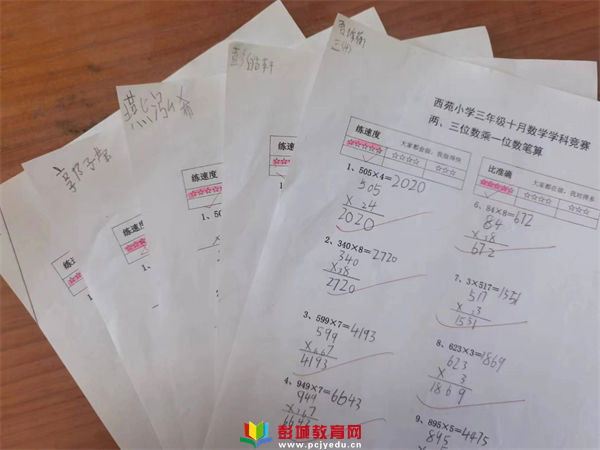 西苑小学三年级十月数学学科竞赛
两、三位数乘一位数笔算
练速度
大家都会做，我做得快
☆☆☆☆☆
☆☆☆☆
☆☆☆
比准确
大家都在做，我对得多
☆☆☆☆☆
☆☆☆☆
☆☆☆
1、505×4=2020
505
× 24
2020
2、340×8=2720
340
×38
2720
3、599×7=4193
599
×667
4193
4、949×7=6643
949
×367
6643
6、84×8=672
84
×38
672
7、3×517=1551
517
× 23
1551
8、623×3=1869
623
× 3
1869
9、895×5=4475
895
练速度
1、50
练速度
1、
练速度
彭城教育网
www.pcjyedu.cn